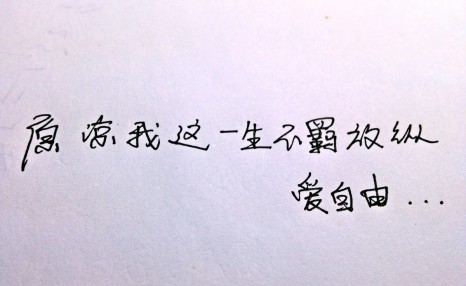 原凉我这一生不羁放纵
爱自由...